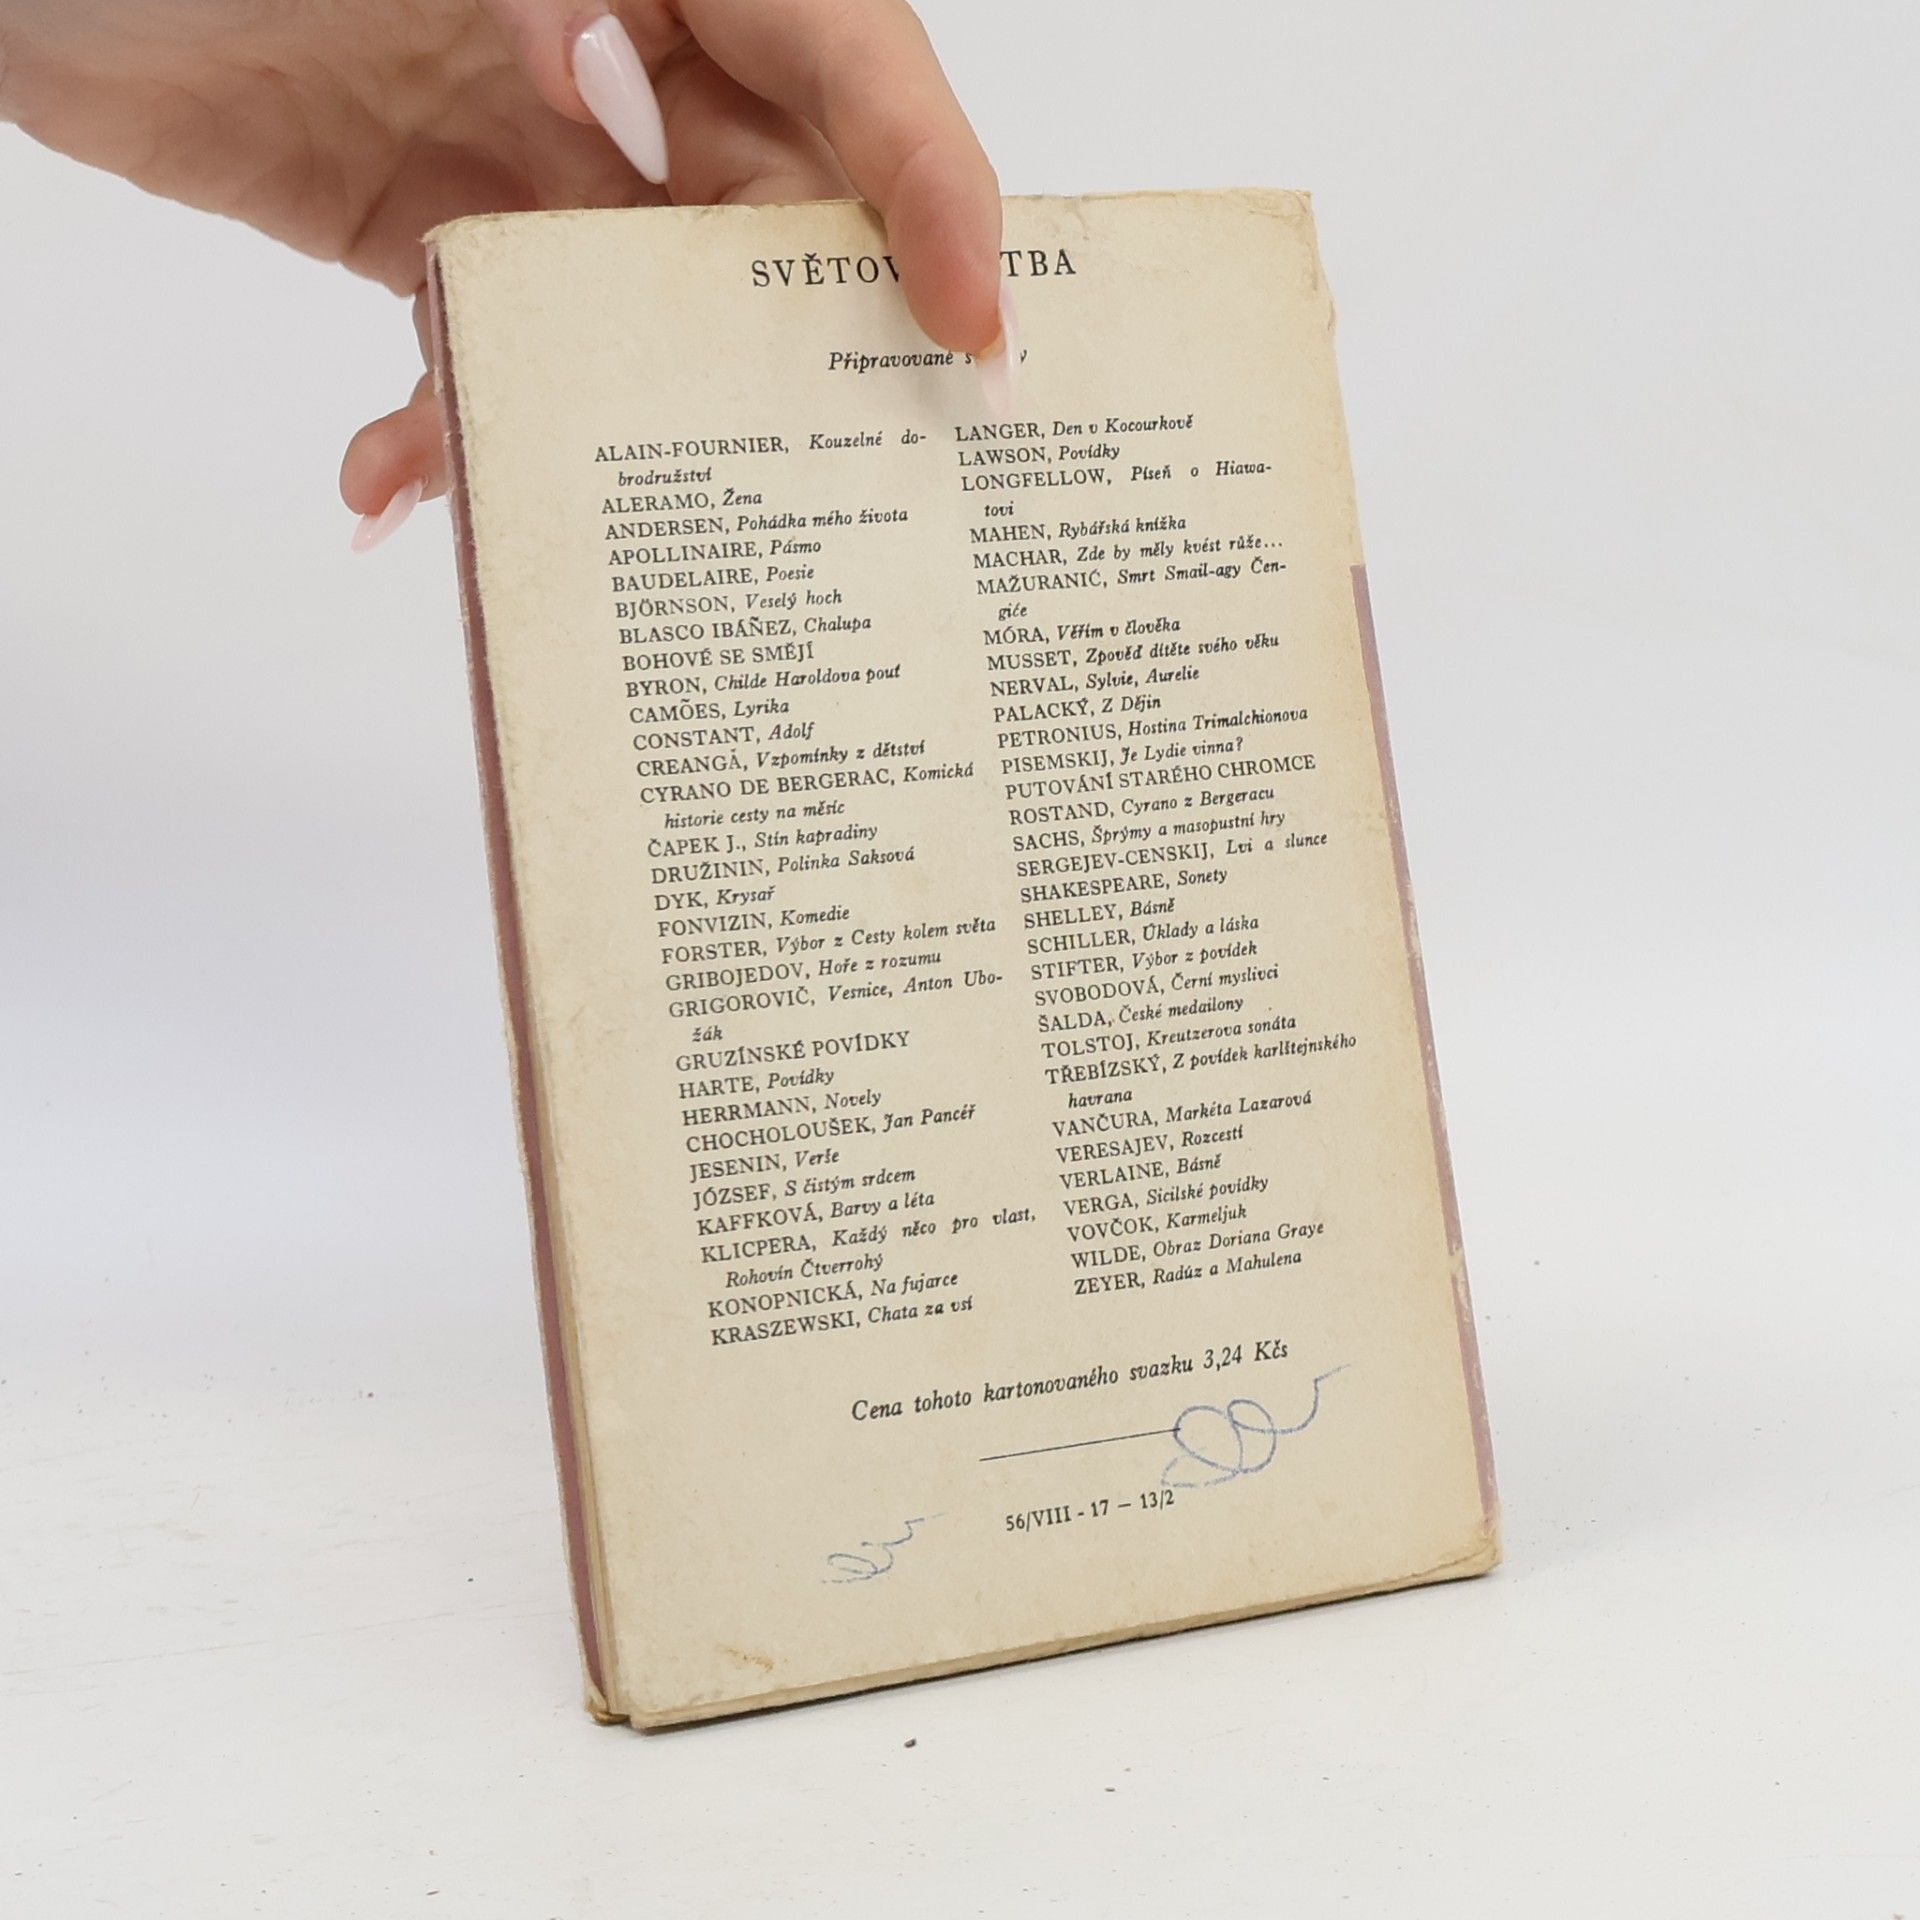 SVĚTOV TBA
Připravované
ALAIN-FOURNIER, Kouzelné do-
brodružství
ALERAMO, Žena
ANDERSEN, Pohádka mého života
APOLLINAIRE, Pásmo
BAUDELAIRE, Poesie
BJÖRNSON, Veselý hoch
BLASCO IBÁÑEZ, Chalupa
BOHOVÉ SE SMĚJÍ
BYRON, Childe Haroldova pouť
CAMÕES, Lyrika
CONSTANT, Adolf
CREANGĂ, Vzpomínky z dětství
CYRANO DE BERGERAC, Komická
historie cesty na měsíc
ČAPEK J., Stín kapradiny
DRUŽININ, Polinka Saksová
DYK, Krysař
FONVIZIN, Komedie
FORSTER, Výbor z Cesty kolem světa
GRIBOJEDOV, Hoře z rozumu
GRIGOROVIČ, Vesnice, Anton Ubo-
žák
GRUZÍNSKÉ POVÍDKY
HARTE, Povídky
HERRMANN, Novely
CHOCHOLOUŠEK, Jan Pancéř
JESENIN, Verše
JÓZSEF, S čistým srdcem
KAFFKOVÁ, Barvy a léta
KLICPERA, Každý něco pro vlast,
Rohovín Čtverrohý
KONOPNICKÁ, Na fujarce
KRASZEWSKI, Chata za vsí
LANGER, Den v Kocourkově
LAWSON, Povídky
LONGFELLOW, Píseň o Hiawa-
tovi
MAHEN, Rybářská knížka
MACHAR, Zde by měly kvést růže...
MAŽURANIĆ, Smrt Smail-agy Čen-
giće
MÓRA, Věřím v člověka
MUSSET, Zpověď dítěte svého věku
NERVAL, Sylvie, Aurelie
PALACKÝ, Z Dějin
PETRONIUS, Hostina Trimalchionova
PISEMSKIJ, Je Lydie vinna?
PUTOVÁNÍ STARÉHO CHROMCE
ROSTAND, Cyrano z Bergeracu
SACHS, Šprýmy a masopustní hry
SERGEJEV-CENSKIJ, Lvi a slunce
SHAKESPEARE, Sonety
SHELLEY, Básně
SCHILLER, Úklady a láska
STIFTER, Výbor z povídek
SVOBODOVÁ, Černí myslivci
ŠALDA, České medailony
TOLSTOJ, Kreutzerova sonáta
TŘEBÍZSKÝ, Z povídek karlštejnského
havrana
VANČURA, Markéta Lazarová
VERESAJEV, Rozcestí
VERLAINE, Básně
VERGA, Sicilské povídky
VOVČOK, Karmeljuk
WILDE, Obraz Doriana Graye
ZEYER, Radúz a Mahulena
Cena tohoto kartonovaného svazku 3,24 Kčs
56/VIII - 17 — 13/2